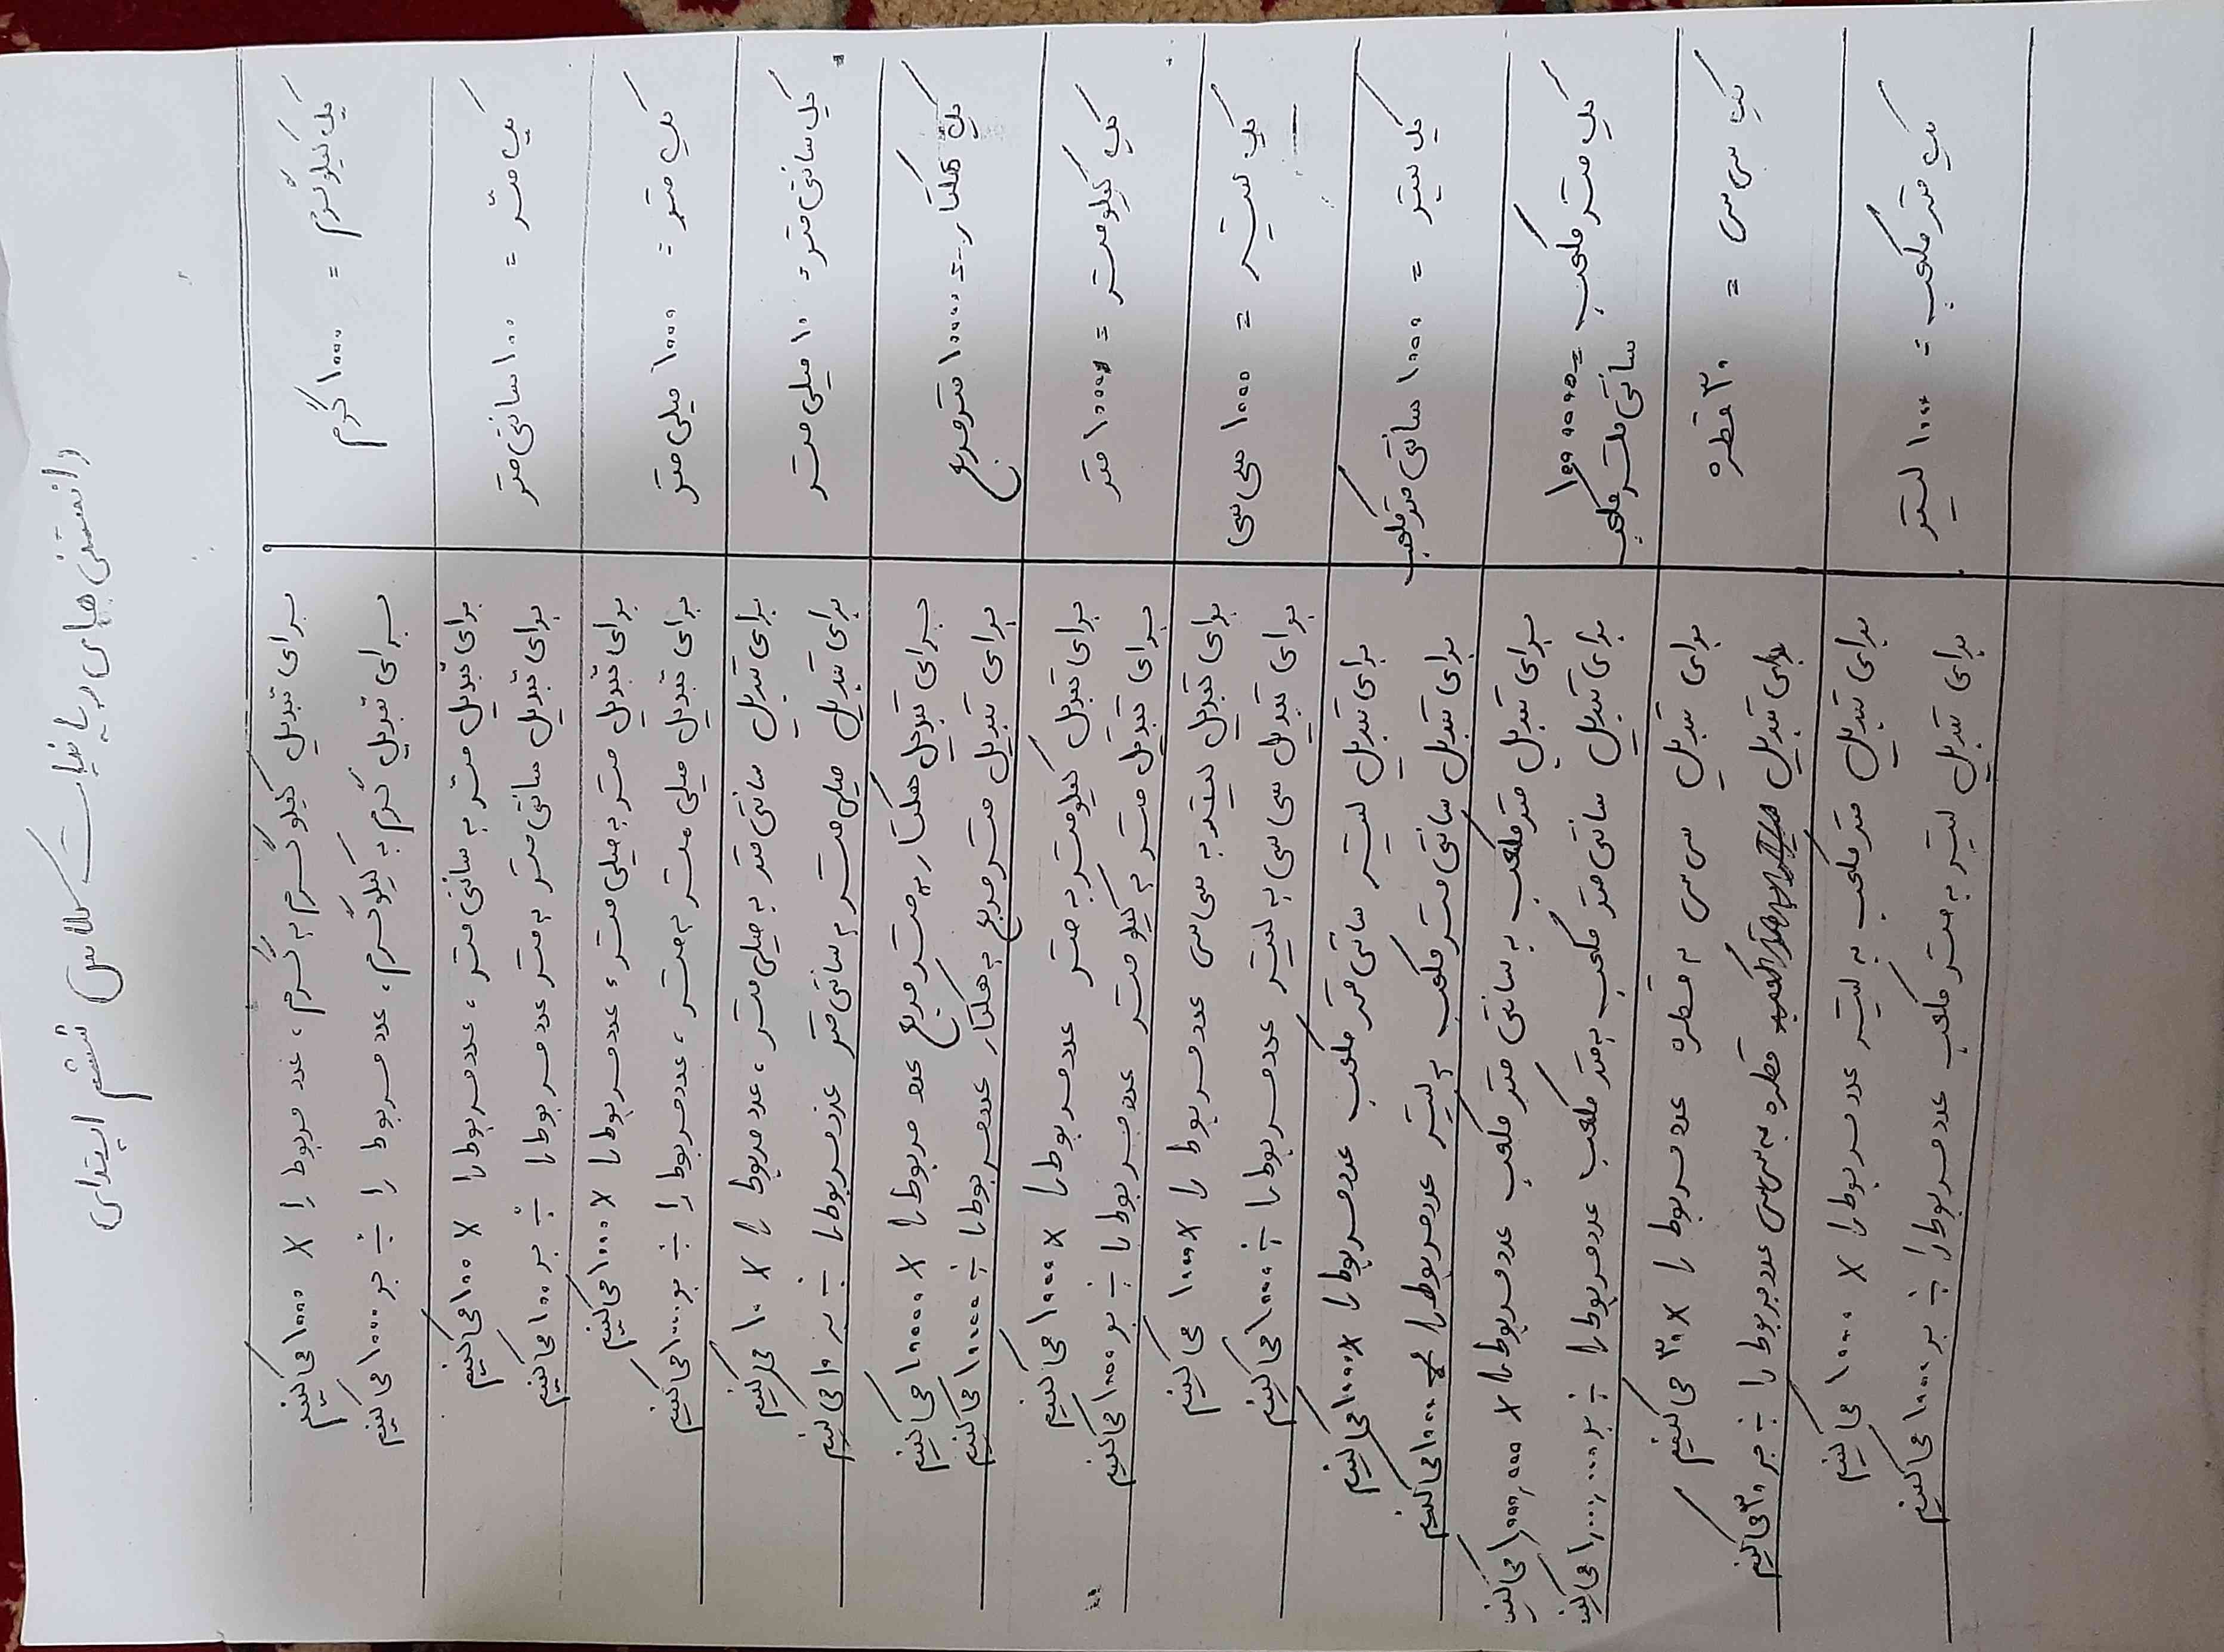 دانستنی های ریاضیات کلاس ششم ابتدای
یک کیلوگرم = ۱۰۰۰ گرم
برای تبدیل کیلوگرم به گرم، عدد مربوط را × ۱۰۰۰ می کنیم
برای تبدیل گرم به کیلوگرم، عدد مربوط را ÷ بر ۱۰۰۰ می کنیم
یک متر = ۱۰۰ سانتی متر
برای تبدیل متر به سانتی متر، عدد مربوط را × ۱۰۰ می کنیم
برای تبدیل سانتی متر به متر عدد مربوط را ÷ بر ۱۰۰ می کنیم
یک متر = ۱۰۰۰ میلی متر
برای تبدیل متر به میلی متر، عدد مربوط را × ۱۰۰۰ می کنیم
برای تبدیل میلی متر به متر، عدد مربوط را ÷ بر ۱۰۰۰ می کنیم
یک سانتی متر = ۱۰ میلی متر
برای تبدیل سانتی متر به میلی متر، عدد مربوط را × ۱۰ می کنیم
برای تبدیل میلی متر به سانتی متر عدد مربوط را ÷ بر ۱۰ می کنیم
یک هکتار = ۱۰۰۰۰ متر مربع
برای تبدیل هکتار به متر مربع عدد مربوط را × ۱۰۰۰۰ می کنیم
برای تبدیل متر مربع به هکتار عدد مربوط را ÷ ۱۰۰۰۰ می کنیم
یک کیلومتر = ۱۰۰۰ متر
برای تبدیل کیلومتر به متر عدد مربوط را × ۱۰۰۰ می کنیم
برای تبدیل متر به کیلومتر عدد مربوط را ÷ بر ۱۰۰۰ می کنیم
یک لیتر = ۱۰۰۰ سی سی
برای تبدیل لیتر به سی سی عدد مربوط را × ۱۰۰۰ می کنیم
برای تبدیل سی سی به لیتر عدد مربوط را ÷ ۱۰۰۰ می کنیم
یک لیتر = ۱۰۰۰ سانتی متر مکعب
برای تبدیل لیتر سانتی متر مکعب عدد مربوط را × ۱۰۰۰ می کنیم
برای تبدیل سانتی متر مکعب به لیتر عدد مربوط را ۱۰۰۰ می کنیم
یک متر مکعب = ۱۰۰۰۰۰۰
سانتی متر مکعب
برای تبدیل متر مکعب به سانتی متر مکعب عدد مربوط را × ۱,۰۰۰,۰۰۰ می کنیم
برای تبدیل سانتی متر مکعب به متر مکعب عدد مربوط را ÷ بر ۱,۰۰۰,۰۰۰ می کنیم
یک سی سی = ۳۰ قطره
برای تبدیل سی سی به قطره عدد مربوط را × ۳۰ می کنیم
برای تبدیل قطره به سی سی عدد مربوط را ÷ بر ۳۰ می کنیم
یک متر مکعب = ۱۰۰۰ لیتر
برای تبدیل متر مکعب به لیتر عدد مربوط را × ۱۰۰۰ می کنیم
برای تبدیل لیتر به متر مکعب عدد مربوط را ÷ بر ۱۰۰۰ می کنیم